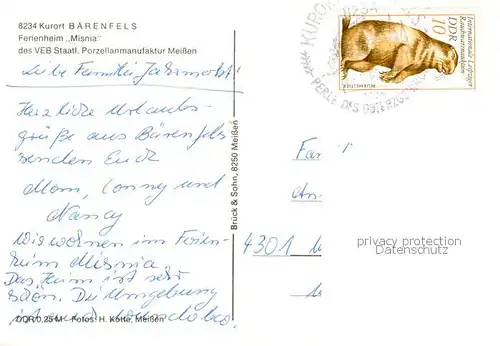 8234 Kurort BÄRENFELS
Ferienheim „Misnia“
des VEB Staatl. Porzellanmanufaktur Meißen
Liebe Familie Jahrmarkt!
Herzliche Urlaubs-
grüße aus Bärenfels
senden Euch
Mom, Conny und
Nancy
Wir wohnen im Ferien-
heim Misnia.
Das Heim ist sehr
schön. Die Umgebung
ist auch
DDR 0,25 M Fotos: H. Kötte, Meißen
Brück & Sohn, 8250 Meißen
8234
KUROR
PERLE DES OSTERZGE
Internationale Leipziger
Rauchwarenauktion
DDR
10
MURMELTIER
Fa
An
4301
privacy protection
Datenschutz